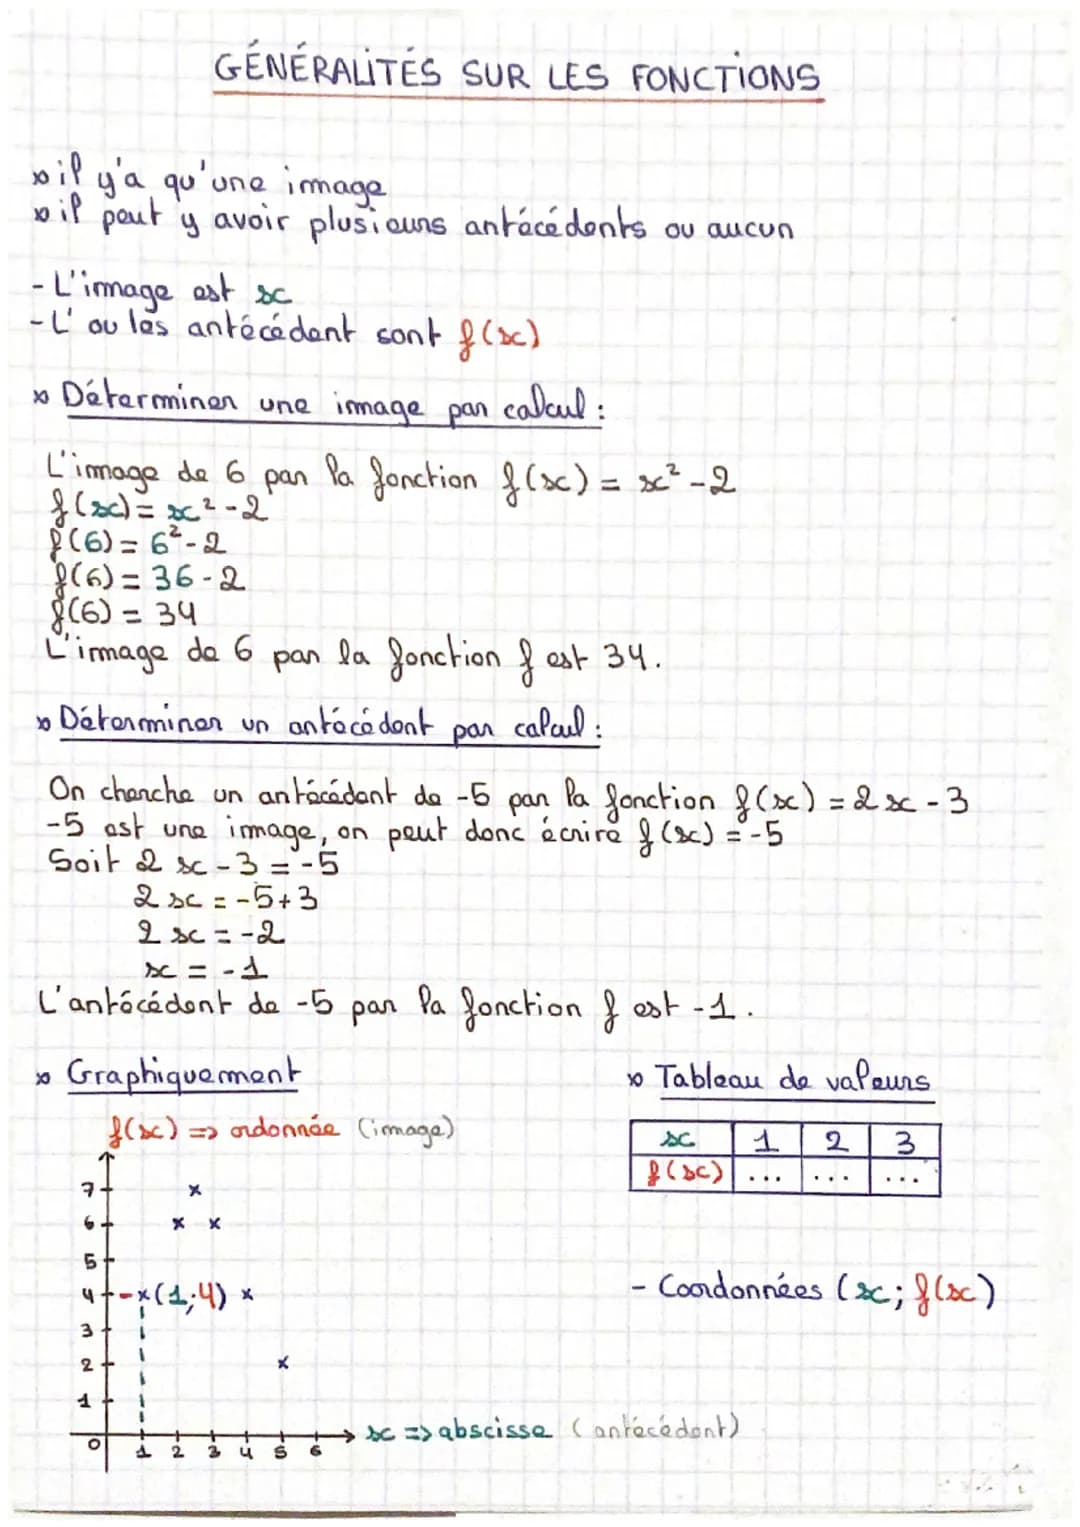 GÉNÉRALITÉS SUR LES FONCTIONS
il y'a qu'une image
il peut y avoir plusieurs antécédents ou aucun
- L'image est x
- L' ou les antécédent sont f(x)
Déterminer une image par calcul :
L'image de 6 par la fonction f(x) = x² - 2
f(x) = x² - 2
f(6) = 6² - 2
f(6) = 36 - 2
f(6) = 34
L'image de 6 par la fonction f est 34.
Déterminer un antécédent par calcul :
On cherche un antécédent de -5 par la fonction f(x) = 2x - 3
-5 est une image, on peut donc écrire f(x) = -5
Soit 2x - 3 = -5
2x = -5 + 3
2x = -2
x = -1
L'antécédent de -5 par la fonction f est -1.
Graphiquement
f(x) => ordonnée (image)
7
6
5
4 (1;4)
3
2
1
0 1 2 3 4 5 6
x => abscisse (antécédent)
Tableau de valeurs
x 1 2 3
f(x) ... ... ...
- Coordonnées (x; f(x)